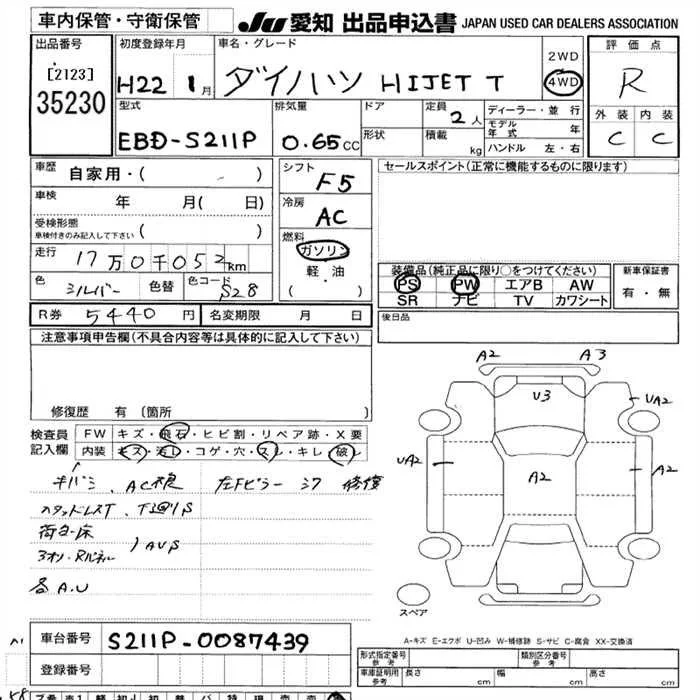 車内保管・守衛保管
JU 愛知 出品申込書 JAPAN USED CAR DEALERS ASSOCIATION
出品番号 [2123] 35230
初度登録年月 H22 1月
車名・グレード ダイハツ HIJET T
2WD
4WD
評価点 R
外装 内装
C C
型式 EBD-S211P
排気量 0.65 CC
ドア
形状
定員 2人
積載 kg
ディーラー・並行
モデル年式 年
ハンドル 左・右
車歴 自家用・( )
車検 年 月( 日)
受検形態 車検付きのみ記入して下さい ( )
走行 17万0千052km
色 シルバー 色替 色コード S28
シフト F5
冷房 AC
燃料 ガソリン
軽・油
( )
セールスポイント(正常に機能するものに限ります)
装備品(純正品に限り○をつけてください)
PS PW エアB AW
SR ナビ TV カワシート
新車保証書
有・無
R券 5440円 名変期限 月 日
後日品
注意事項申告欄(不具合内容等は具体的に記入して下さい)
修復歴 有 〔箇所
検査員記入欄
FW キズ・飛石・ヒビ割・リペア跡・X要
内装 キズ・汚レ・コゲ・穴・スレ・キレ・破レ
キバミ、AC
左Fピラー 修復
荷台・床
各A.U
A2 A3
U3
UA2
UA2
A2
A2
スペア
A-キズ E-エクボ U-凹み W-補修跡 S-サビ C-腐食 XX-交換済
車台番号 S211P-0087439
登録番号
形式指定番号 参考
類別区分番号 参考
車庫証明用 参考 長さ cm 幅 cm 高さ cm